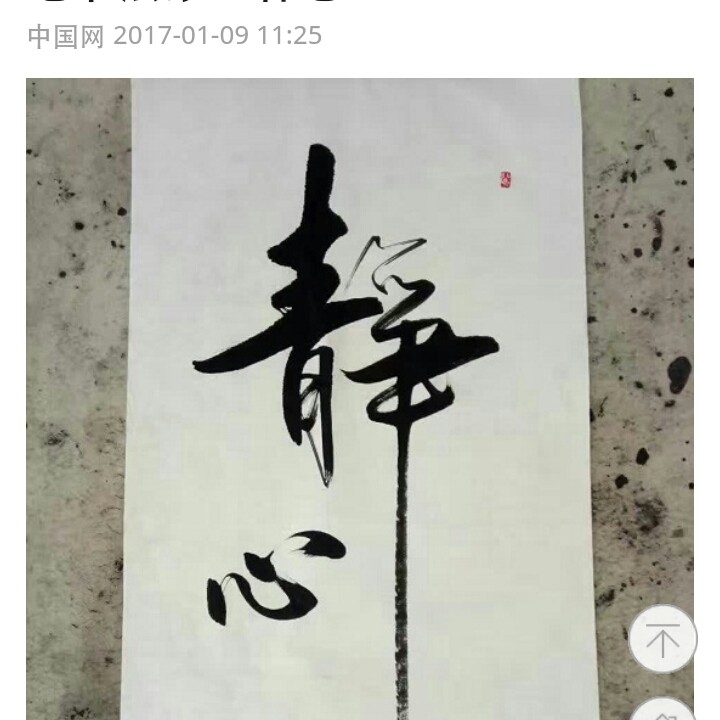 中国网 2017-01-09 11:25
靜
心